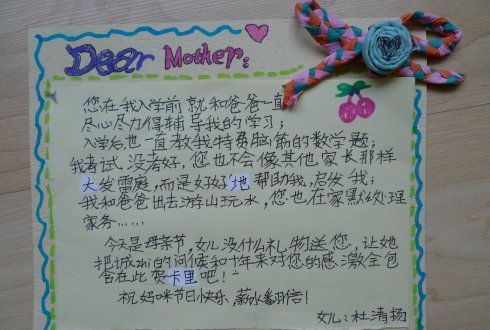 Dear Mother:
您在我入学前就和爸爸一直
尽心尽力得辅导我的学习;
入学后也一直教我特费脑筋的数学题;
我考试没考好,您也不会像其他家长那样
大发雷庭,而是好好地帮助我,启发我;
我和爸爸出去游山玩水,您也在家默默处理
家务……
今天是母亲节,女儿没什么礼物送您,让她
把诚zhi的问候和十年来对您的感激全包
含在此贺卡里吧!
祝妈咪节日快乐 薪水翻倍!
女儿:杜清扬